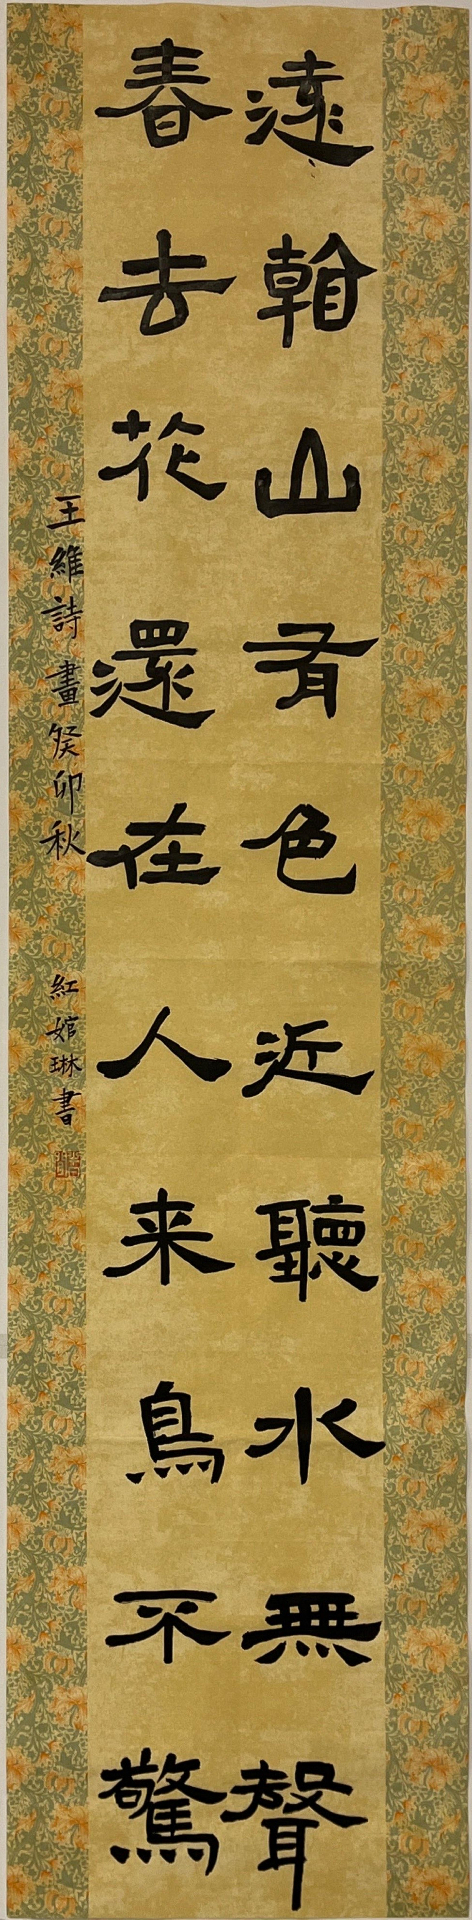 遠看山有色近聽水無聲
春去花還在人来鳥不驚
王維詩畫癸卯秋 紅婠琳書